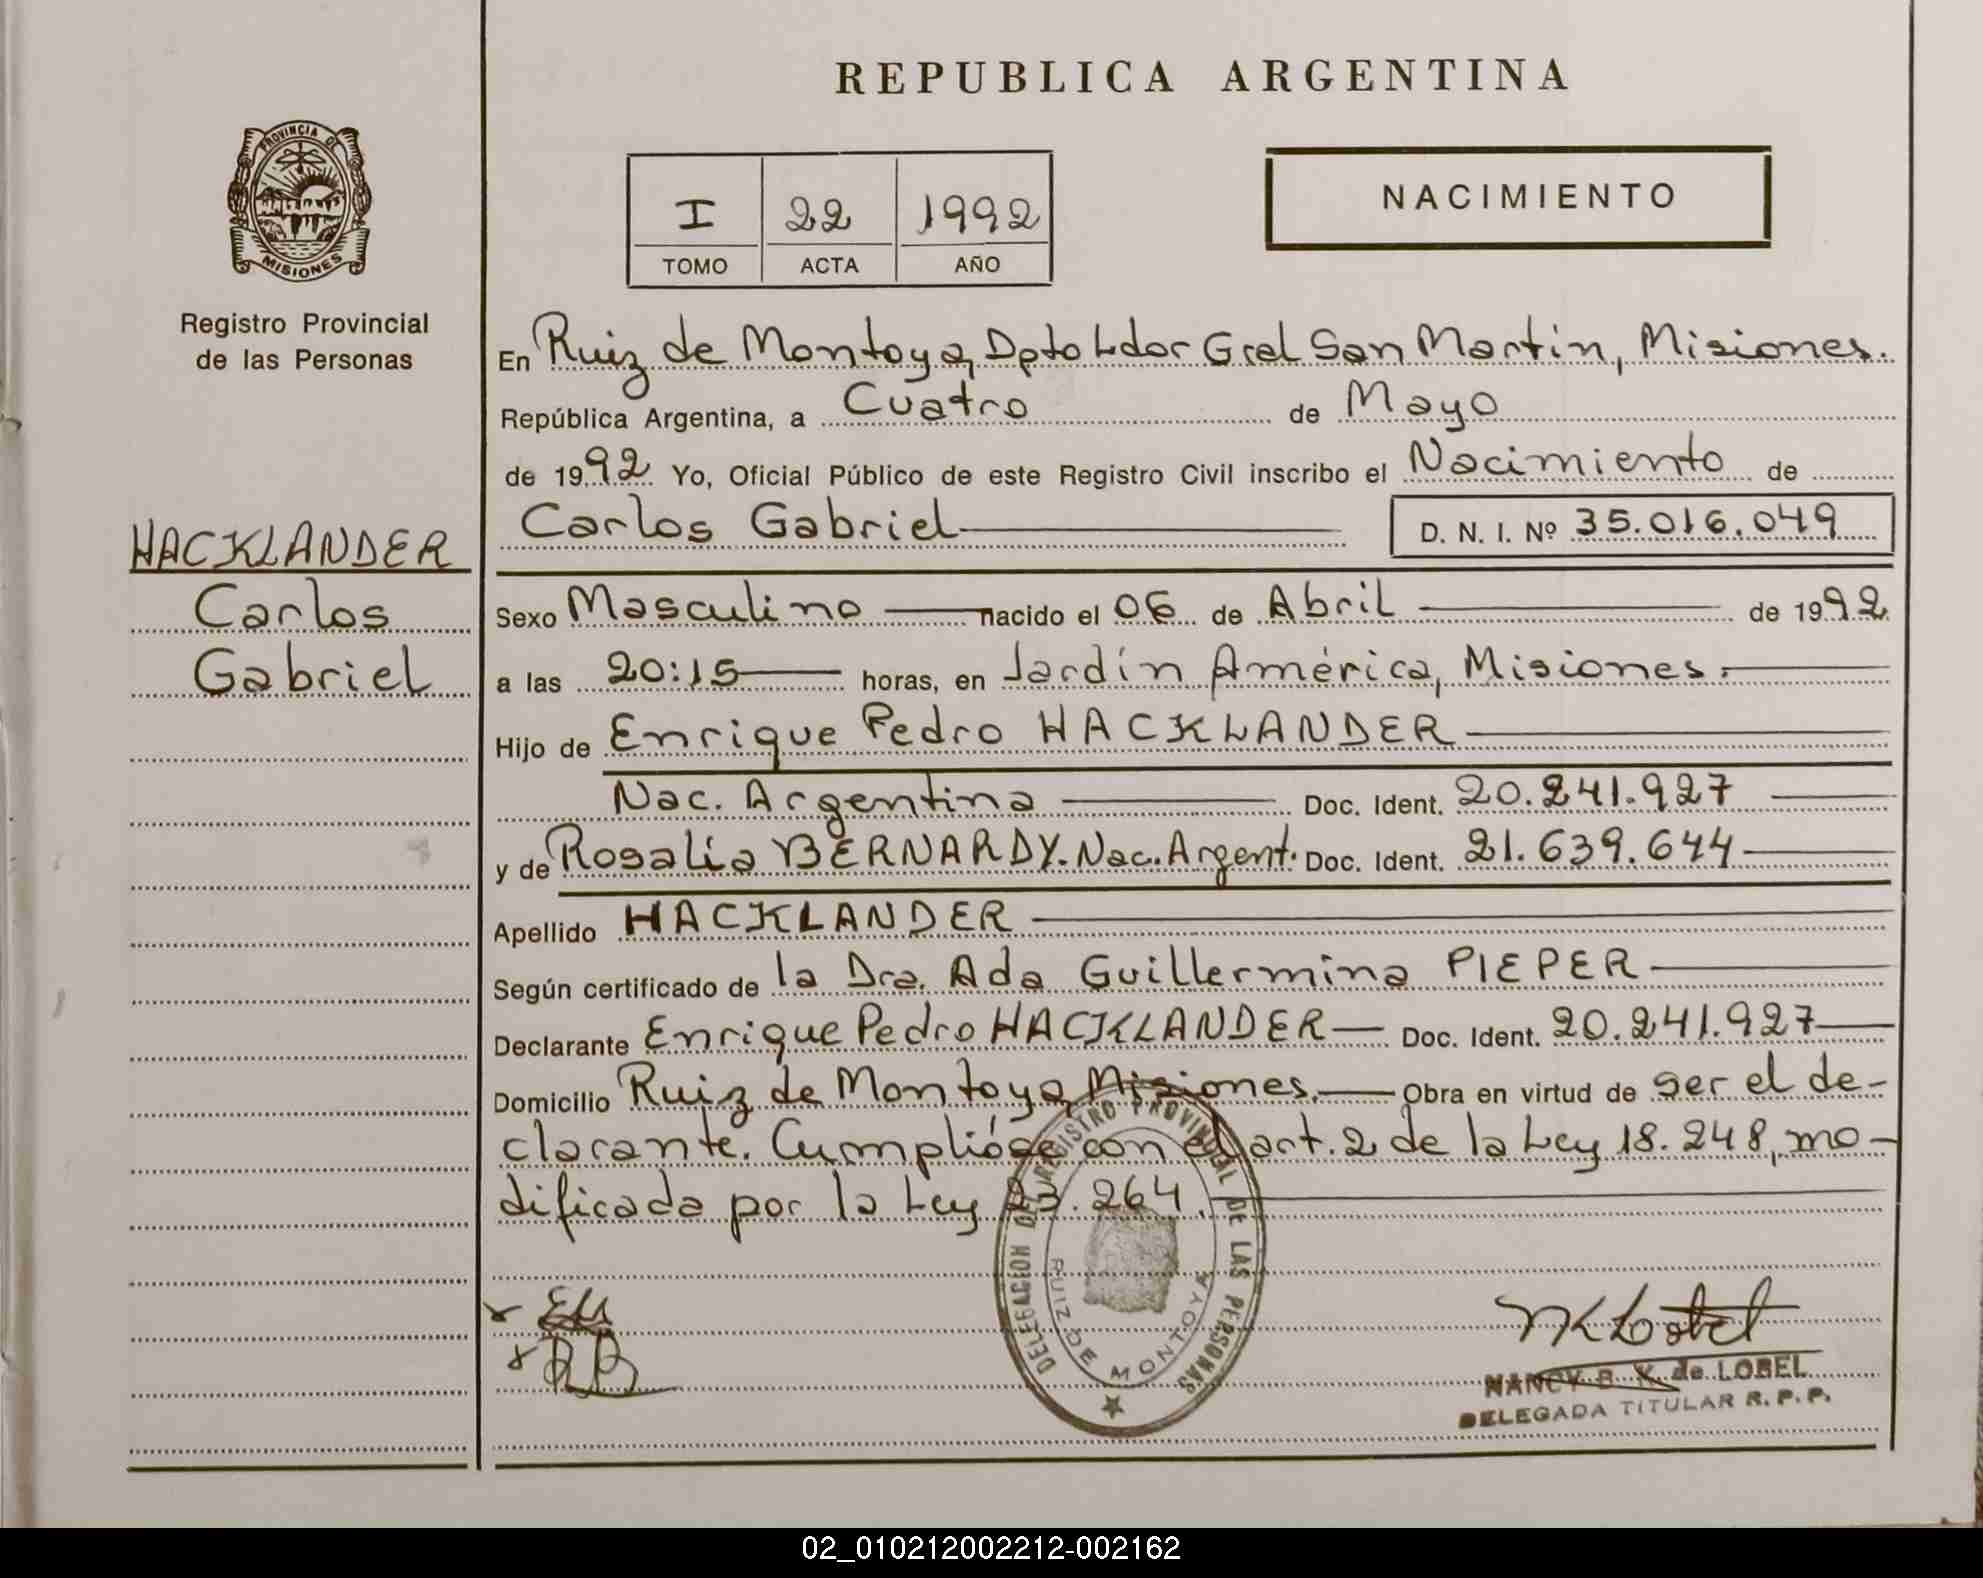 REPUBLICA ARGENTINA
PROVINCIA DE
MISIONES
Registro Provincial
de las Personas
I 22 1992
TOMO ACTA AÑO
NACIMIENTO
En Ruiz de Montoya, Dpto Ldor Gral San Martín, Misiones.
República Argentina, a Cuatro de Mayo
de 1992 Yo, Oficial Público de este Registro Civil inscribo el Nacimiento de
Carlos Gabriel D. N. I. Nº 35.016.049
HACKLANDER
Carlos
Gabriel
Sexo Masculino nacido el 06 de Abril de 1992
a las 20:15 horas, en Jardín América, Misiones.
Hijo de Enrique Pedro HACKLANDER
Nac. Argentina Doc. Ident. 20.241.927
y de Rosalía BERNARDY. Nac. Argent. Doc. Ident. 21.639.644
Apellido HACKLANDER
Según certificado de la Dra. Ada Guillermina PIEPER
Declarante Enrique Pedro HACKLANDER Doc. Ident. 20.241.927
Domicilio Ruiz de Montoya, Misiones. Obra en virtud de ser el de-
clarante. Cumplióse con el art. 2 de la Ley 18.248, mo-
dificada por la Ley 23.264.
DELEGACION DEL REGISTRO PROVINCIAL DE LAS PERSONAS
RUIZ DE MONTOYA
x EH
x RB
NK Lobel
NANCY B. K. de LOBEL
DELEGADA TITULAR R. P. P.
02_010212002212-002162